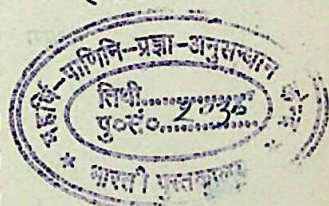 महर्षि-पाणिनि-प्रज्ञा-अनुसन्धान
तिथी..............
पु०सं०..............
* भारती पुस्तकालय